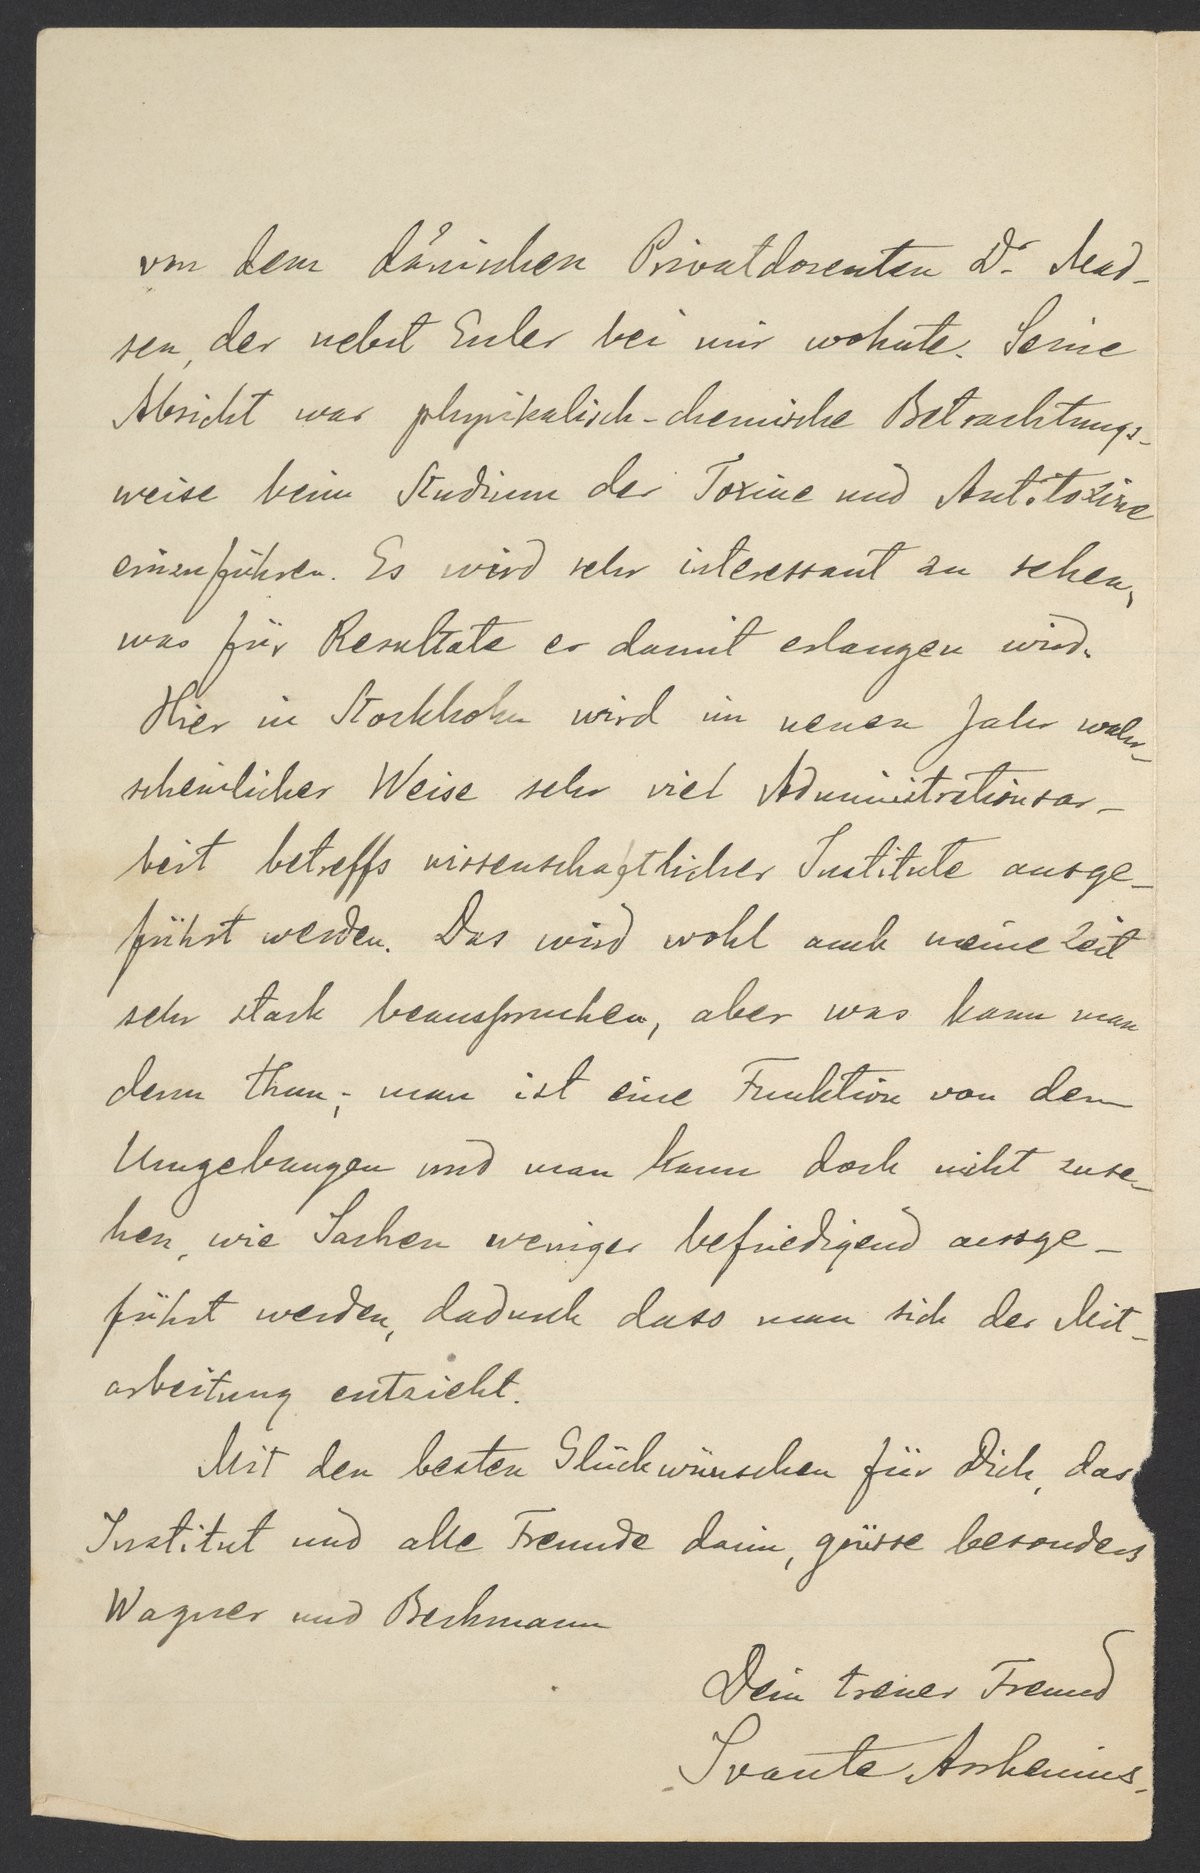 von dem dänischen Privatdocenten Dr. Mad-
sen, der nebst Euler bei mir wohnte. Seine
Absicht war physikalisch-chemische Betrachtungs-
weise beim Studium der Toxine und Antitoxine
einzuführen. Es wird sehr interessant zu sehen,
was für Resultate er damit erlangen wird.
Hier in Stockholm wird im neuen Jahr wahr-
scheinlicher Weise sehr viel Administrationsar-
beit betreffs wissenschaftlicher Institute ausge-
führt werden. Das wird wohl auch meine Zeit
sehr stark beanspruchen, aber was kann man
denn thun; man ist eine Funktion von den
Umgebungen und man kann doch nicht zuse-
hen, wie Sachen weniger befriedigend ausge-
führt werden, dadurch dass man sich der Mit-
arbeitung entzieht.
Mit den besten Glückwünschen für Dich, das
Institut und alle Freunde darin, grüsse besonders
Wagner und Beckmann
Dein treuer Freund
Svante Arrhenius.